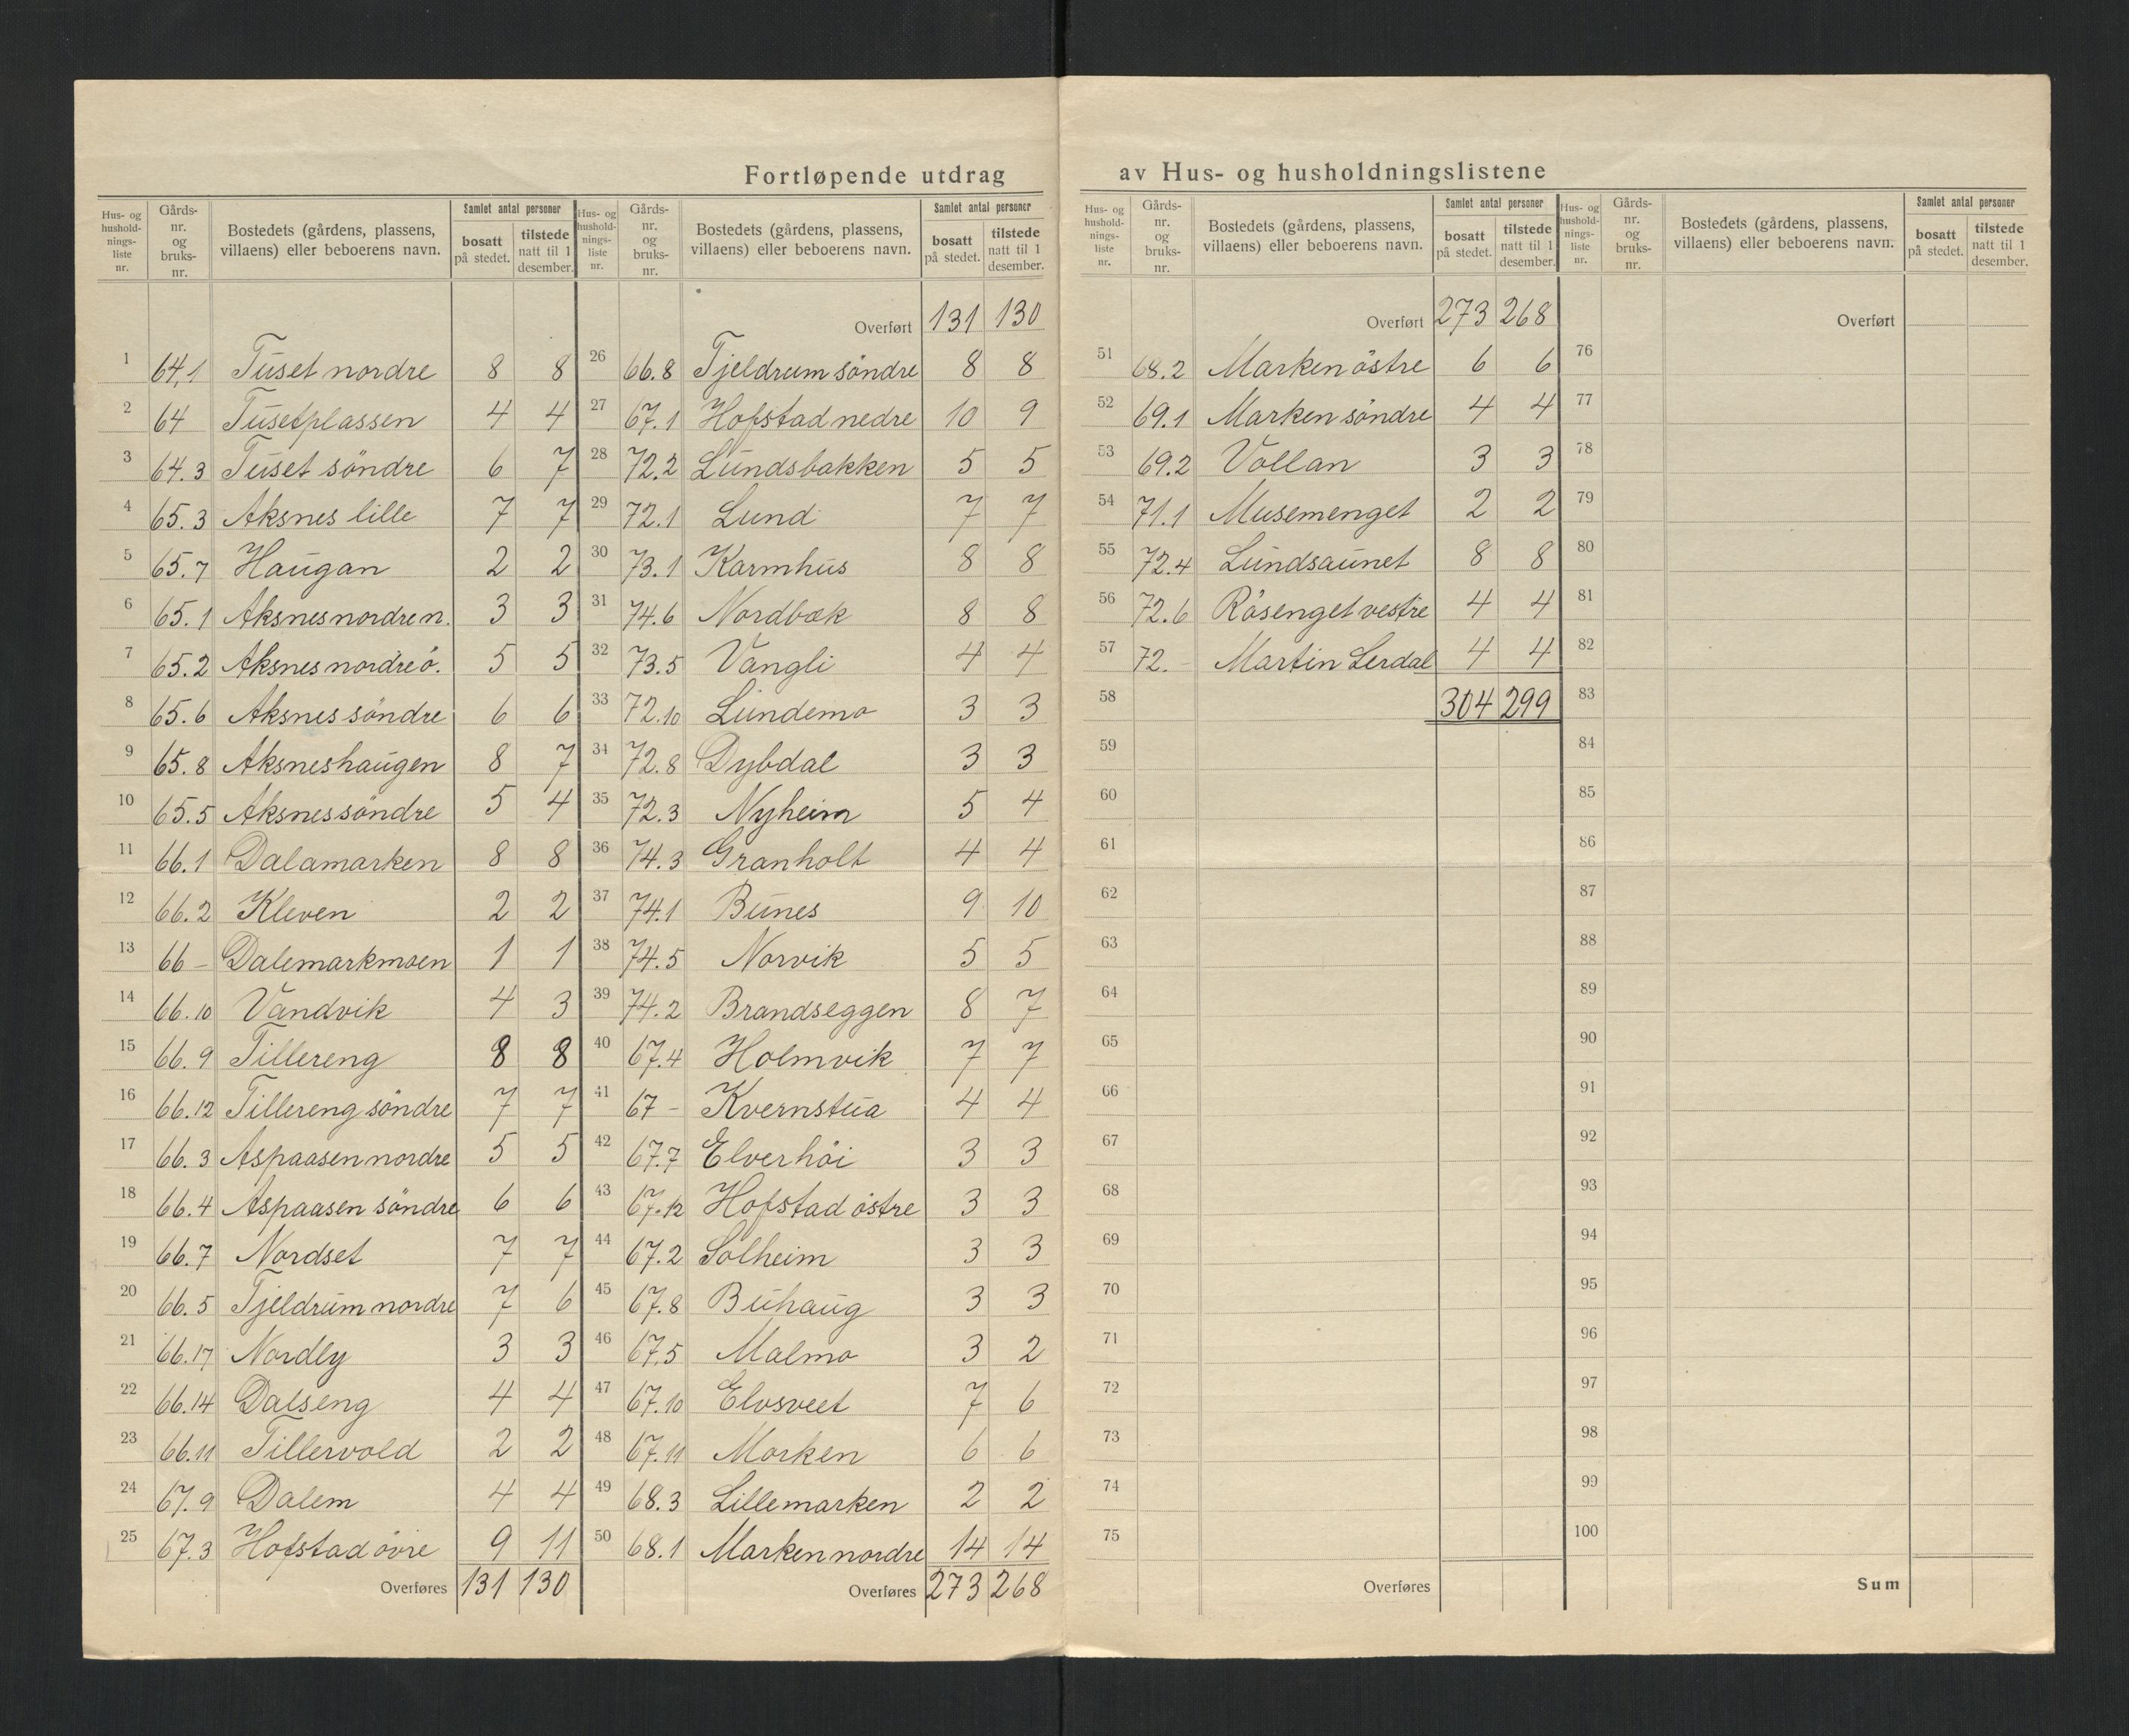 Fortløpende utdrag av Hus- og husholdningslistene
Hus- og hushold-nings-liste nr. Gårds-nr. og bruks-nr. Bostedets (gårdens, plassens, villaens) eller beboerens navn. Samlet antal personer bosatt på stedet. tilstede natt til 1 desember.
1 64,1 Tuset nordre 8 8
2 64 Tusetplassen 4 4
3 64.3 Tuset söndre 6 7
4 65.3 Aksnes lille 7 7
5 65.7 Haugan 2 2
6 65.1 Aksnes nordre n. 3 3
7 65.2 Aksnes nordre ö. 5 5
8 65.6 Aksnes söndre 6 6
9 65.8 Aksneshaugen 8 7
10 65.5 Aksnes söndre 5 4
11 66.1 Dalamarken 8 8
12 66.2 Kleven 2 2
13 66 – Dalemarkmoen 1 1
14 66.10 Vandvik 4 3
15 66.9 Tillereng 8 8
16 66.12 Tillereng söndre 7 7
17 66.3 Aspaasen nordre 5 5
18 66.4 Aspaasen söndre 6 6
19 66.7 Nordset 7 7
20 66.5 Tjeldrum nordre 7 6
21 66.17 Nordly 3 3
22 66.14 Dalseng 4 4
23 66.11 Tillervold 2 2
24 67.9 Dalem 4 4
25 67.3 Hofstad övre 9 11
Overføres 131 130
Hus- og hushold-nings-liste nr. Gårds-nr. og bruks-nr. Bostedets (gårdens, plassens, villaens) eller beboerens navn. Samlet antal personer bosatt på stedet. tilstede natt til 1 desember.
Overført 131 130
26 66.8 Tjeldrum söndre 8 8
27 67.1 Hofstad nedre 10 9
28 72.2 Lundsbakken 5 5
29 72.1 Lund 7 7
30 73.1 Karmhus 8 8
31 74.6 Nordbæk 8 8
32 73.5 Vangli 4 4
33 72.10 Lundemo 3 3
34 72.8 Dybdal 3 3
35 72.3 Nyheim 5 4
36 74.3 Granholt 4 4
37 74.1 Bunes 9 10
38 74.5 Norvik 5 5
39 74.2 Brandseggen 8 7
40 67.4 Holmvik 7 7
41 67 – Kvernstua 4 4
42 67.7 Elverhöi 3 3
43 67.12 Hofstad östre 3 3
44 67.2 Solheim 3 3
45 67.8 Buhaug 3 3
46 67.5 Malmo 3 2
47 67.10 Elvsveet 7 6
48 67.11 Morken 6 6
49 68.3 Lillemarken 2 2
50 68.1 Marken nordre 14 14
Overføres 273 268
Hus- og hushold-nings-liste nr. Gårds-nr. og bruks-nr. Bostedets (gårdens, plassens, villaens) eller beboerens navn. Samlet antal personer bosatt på stedet. tilstede natt til 1 desember.
Overført 273 268
51 68.2 Marken östre 6 6
52 69.1 Marken söndre 4 4
53 69.2 Vollan 3 3
54 71.1 Musemenget 2 2
55 72.4 Lundsaunet 8 8
56 72.6 Rösenget vestre 4 4
57 72. – Martin Lerdal 4 4
58 304 299
59
60
61
62
63
64
65
66
67
68
69
70
71
72
73
74
75
Overføres
Hus- og hushold-nings-liste nr. Gårds-nr. og bruks-nr. Bostedets (gårdens, plassens, villaens) eller beboerens navn. Samlet antal personer bosatt på stedet. tilstede natt til 1 desember.
Overført
76
77
78
79
80
81
82
83
84
85
86
87
88
89
90
91
92
93
94
95
96
97
98
99
100
Sum